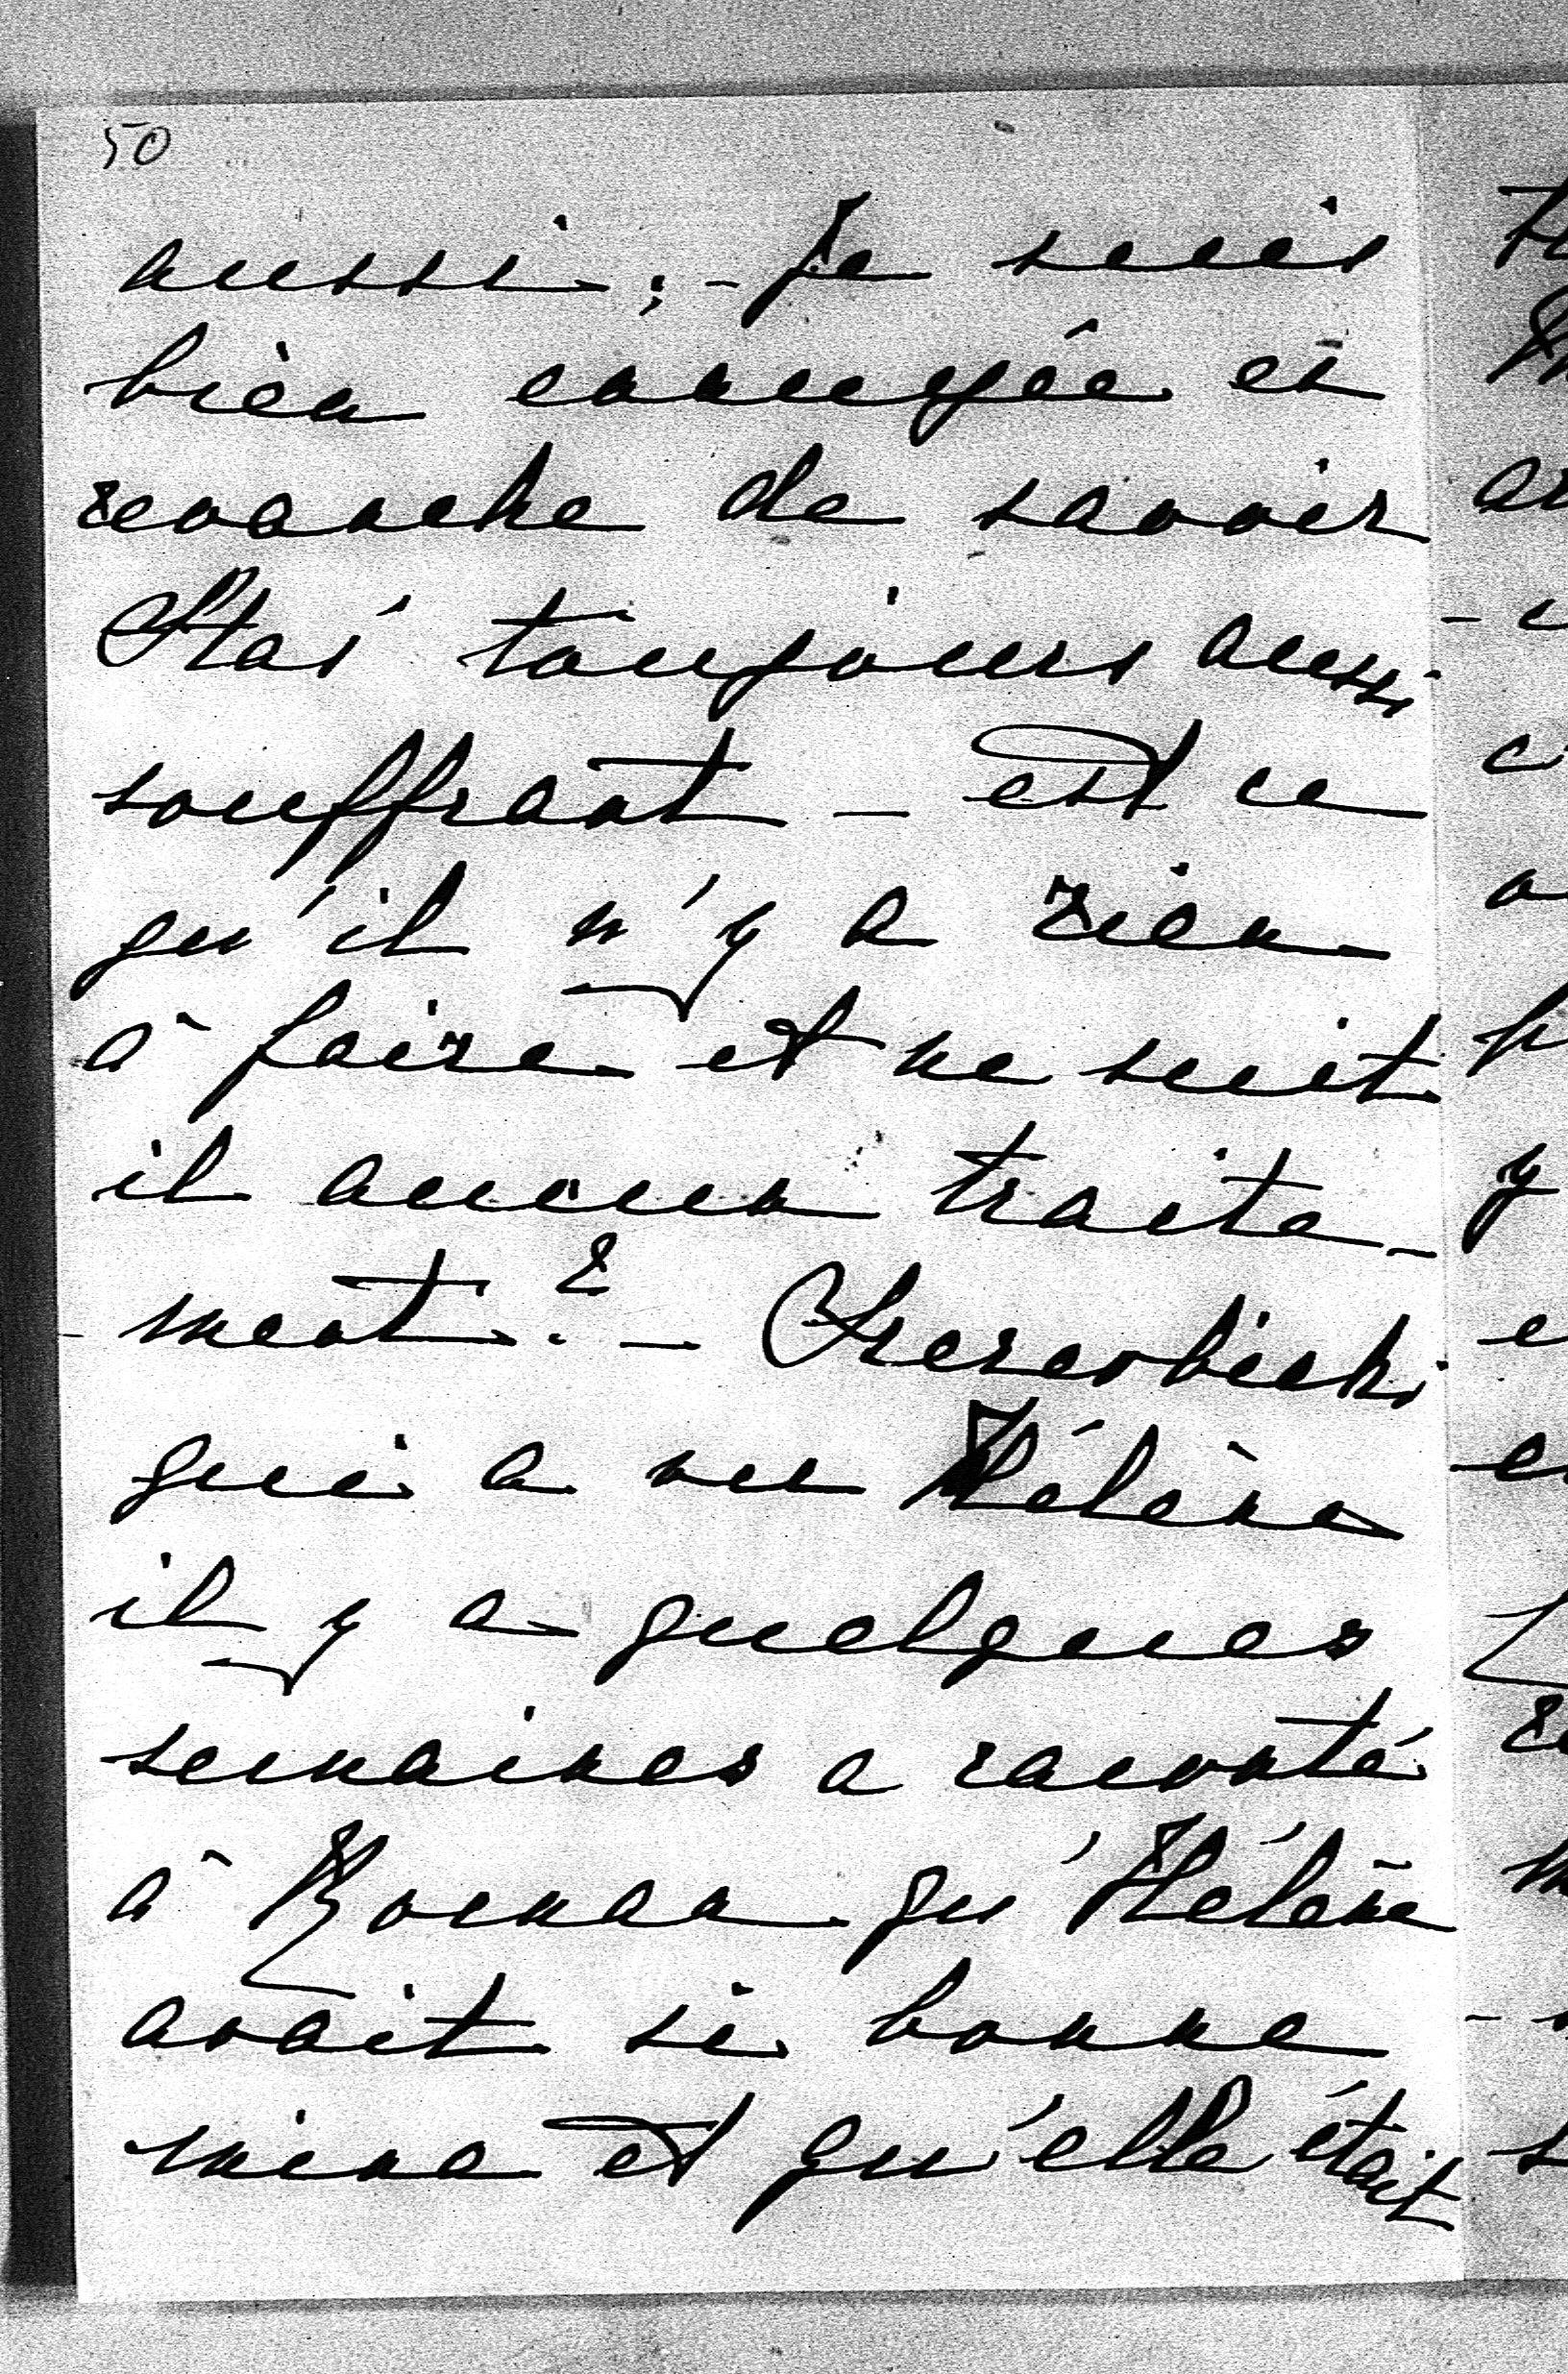 50
aussi; - Je suis
bien ennuyée en
revanche de savoir
Staś toujours aussi
souffrant - est ce
qu'il n'y a rien
à faire et ne suit
il aucun traite-
ment? -
qui a vu Hélène
il y a quelques
semaines a raconté
à Roman qu'Hélène
avait si bonne
mine et qu'elle était